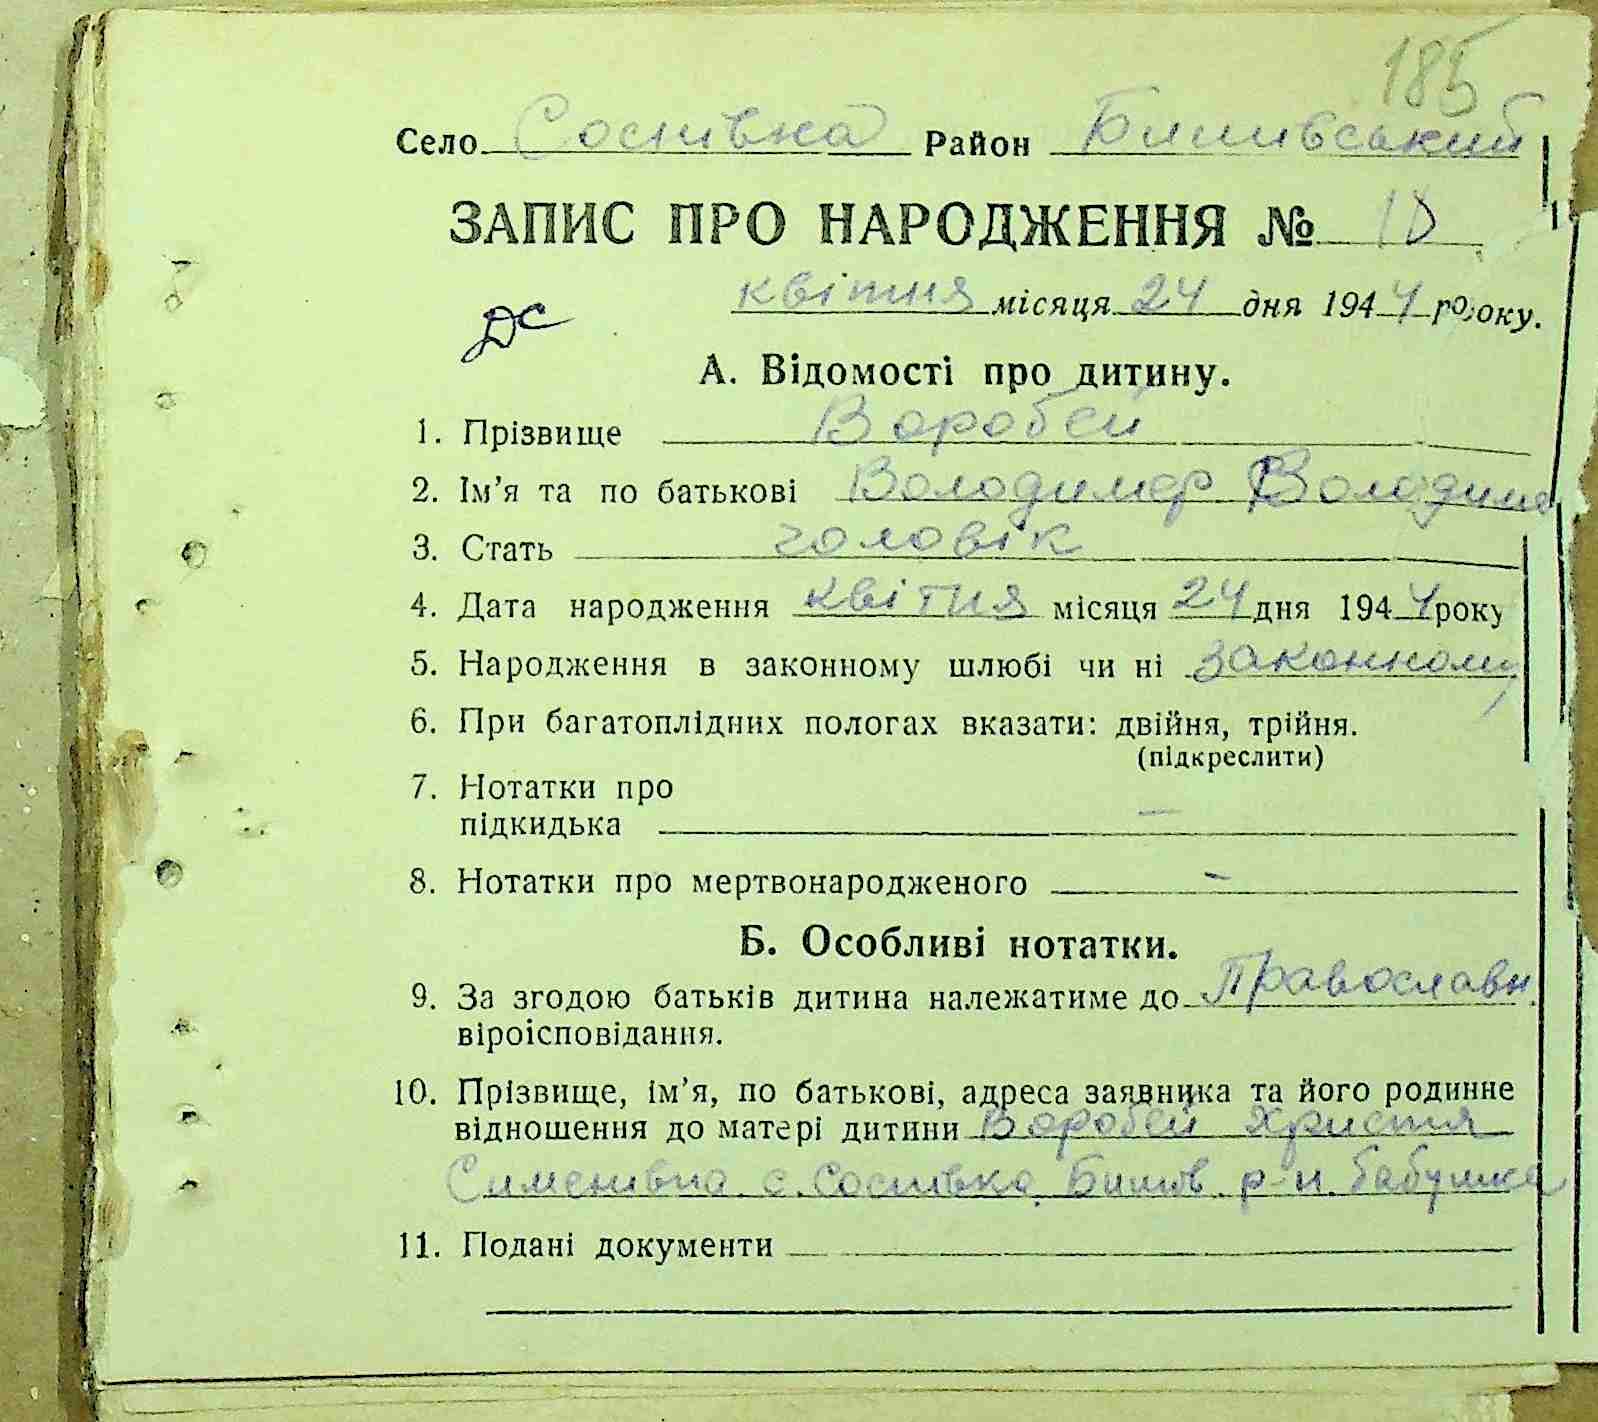 185
Село Соснівка Район Бишівський
ЗАПИС ПРО НАРОДЖЕННЯ № 10
квітня місяця 24 дня 1944 року.
ДС
А. Відомості про дитину.
1. Прізвище Воробей
2. Ім’я та по батькові Володимер Володими
3. Стать чоловік
4. Дата народження квітня місяця 24 дня 1944 року
5. Народження в законному шлюбі чи ні законному
6. При багатоплідних пологах вказати: двійня, трійня.
(підкреслити)
7. Нотатки про
підкидька —
8. Нотатки про мертвонародженого -
Б. Особливі нотатки.
9. За згодою батьків дитина належатиме до Православн.
віроісповідання.
10. Прізвище, ім’я, по батькові, адреса заявника та його родинне
відношення до матері дитини Воробей Христя
Сименівна с. Соснівка Бишів р-н. бабушка
11. Подані документи